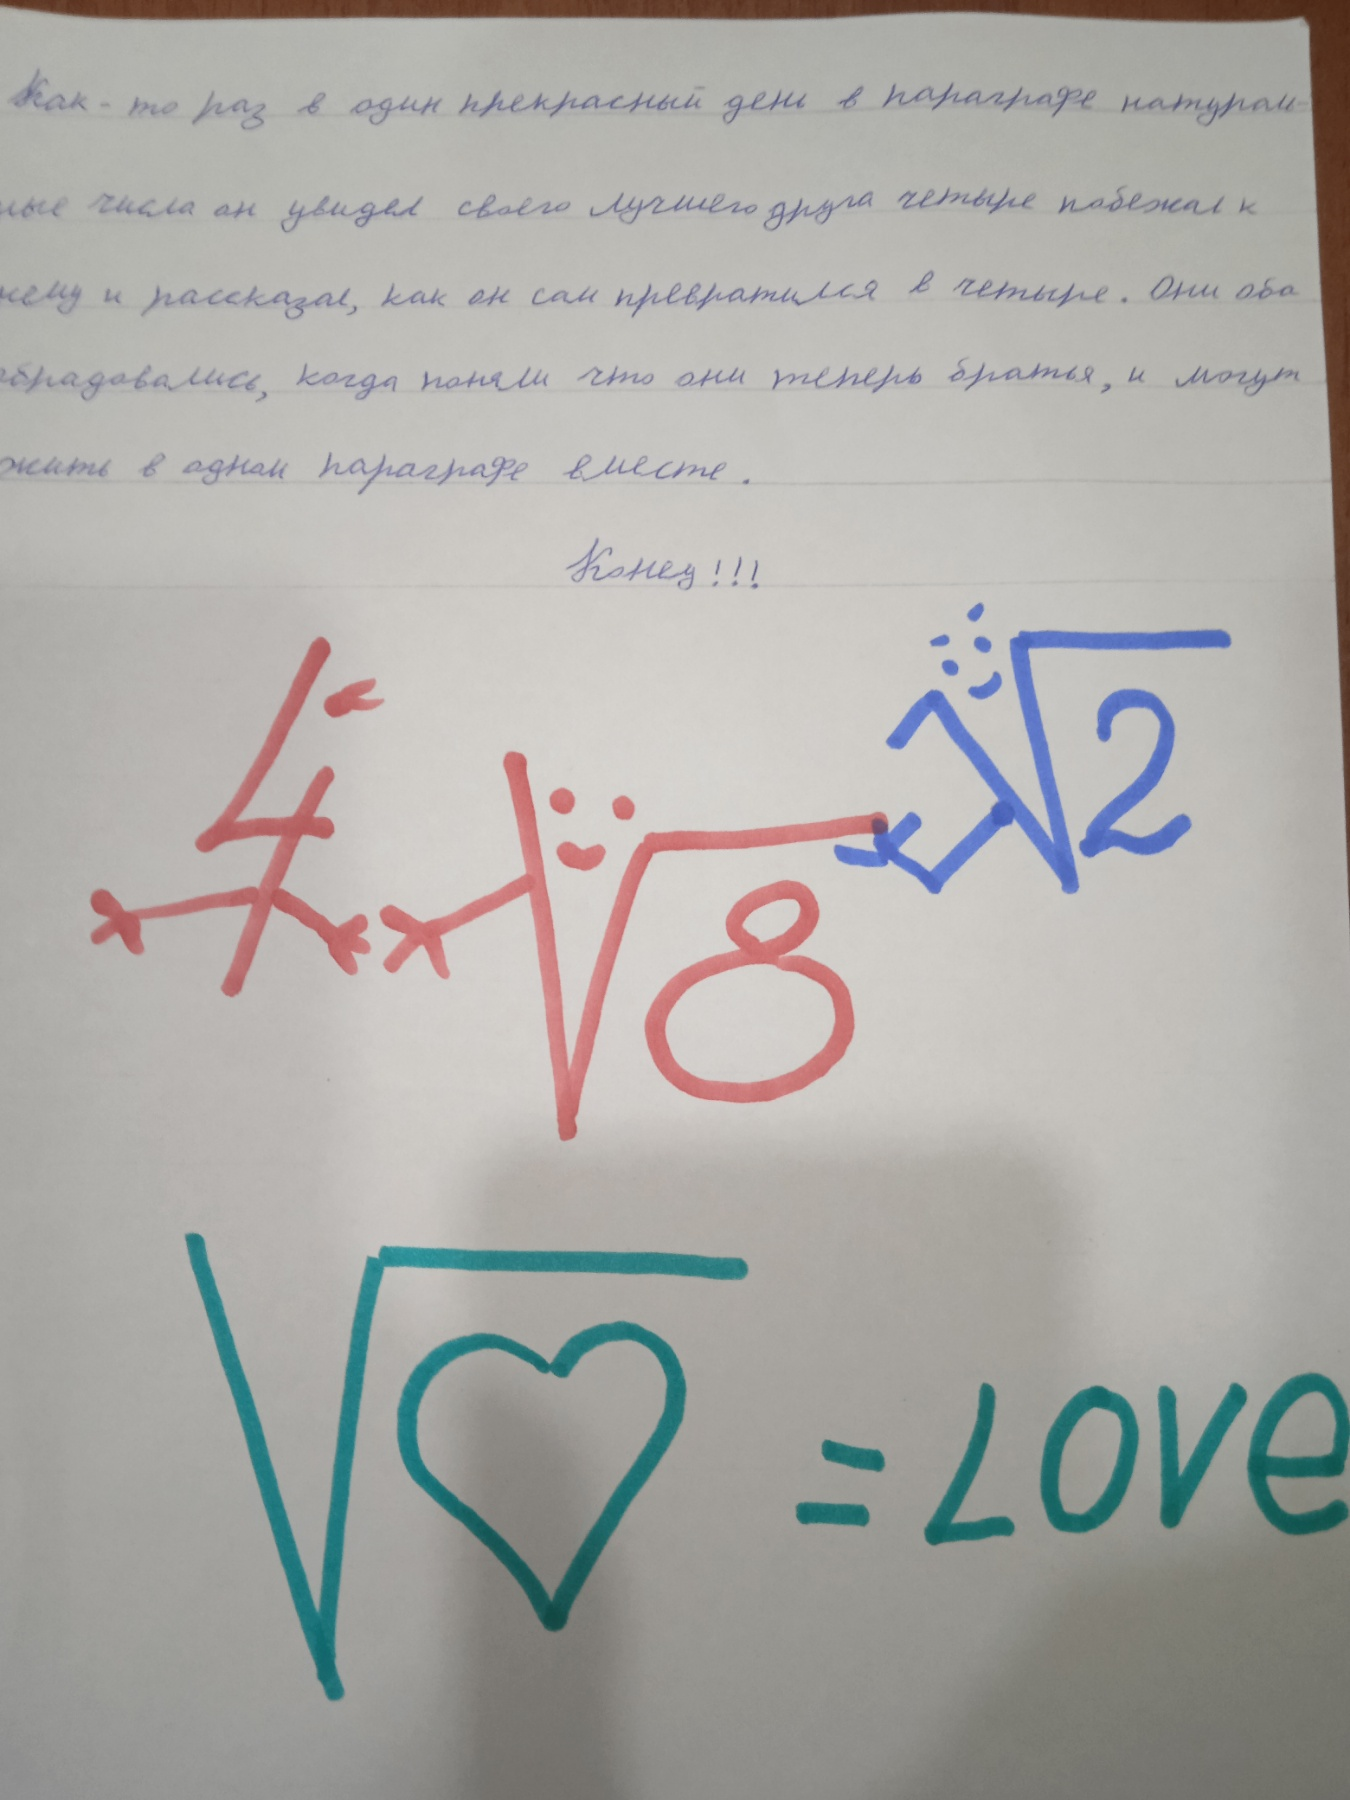 Как-то раз в один прекрасный день в параграфе натураль-
ные числа он увидел своего лучшего друга четыре побежал к
нему и рассказал, как он сам превратился в четыре. Они оба
обрадовались, когда поняли что они теперь братья, и могут
жить в одном параграфе вместе.
Конец!!!
4
√8
√2
√♡ = LOVE